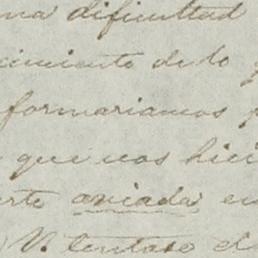 na dificultad
cimiento de lo
formariamos
que nos hici
rte aviada en
V. tentase el